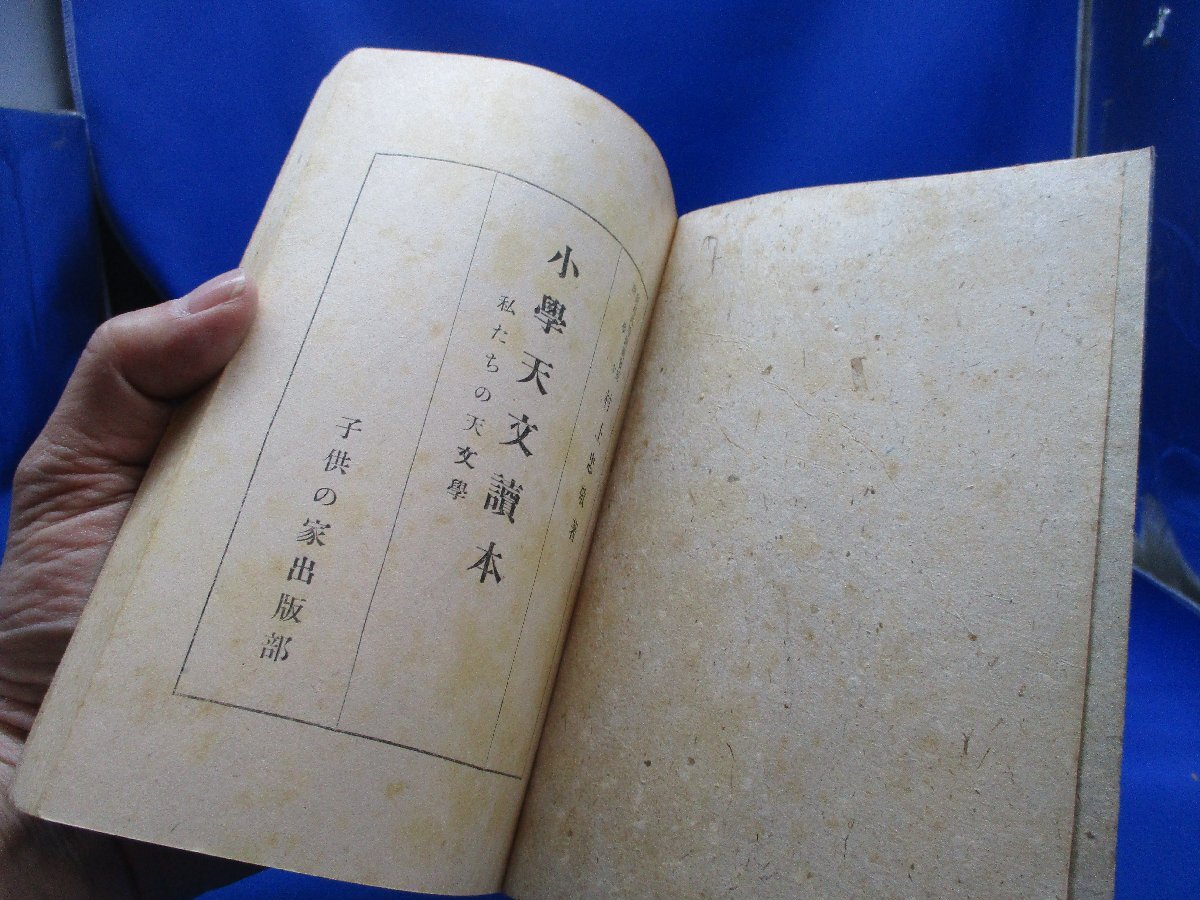 村上忠敬著
小學天文讀本
私たちの天文學
子供の家出版部